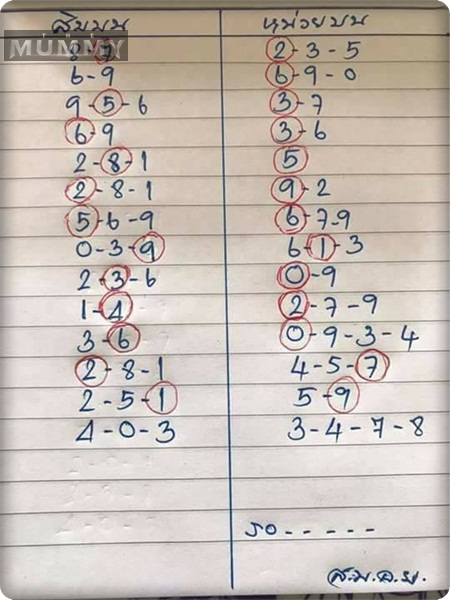 สิบบน หน่วยบน
MUMMY
8-7 2-3-5
6-9 6-9-0
9-5-6 3-7
6-9 3-6
2-8-1 5
2-8-1 9-2
5-6-9 6-7-9
0-3-9 6-1-3
2-3-6 0-9
1-4 2-7-9
3-6 0-9-3-4
2-8-1 4-5-7
2-5-1 5-9
4-0-3 3-4-7-8
รอ-----
ส.ม.อ.ย.